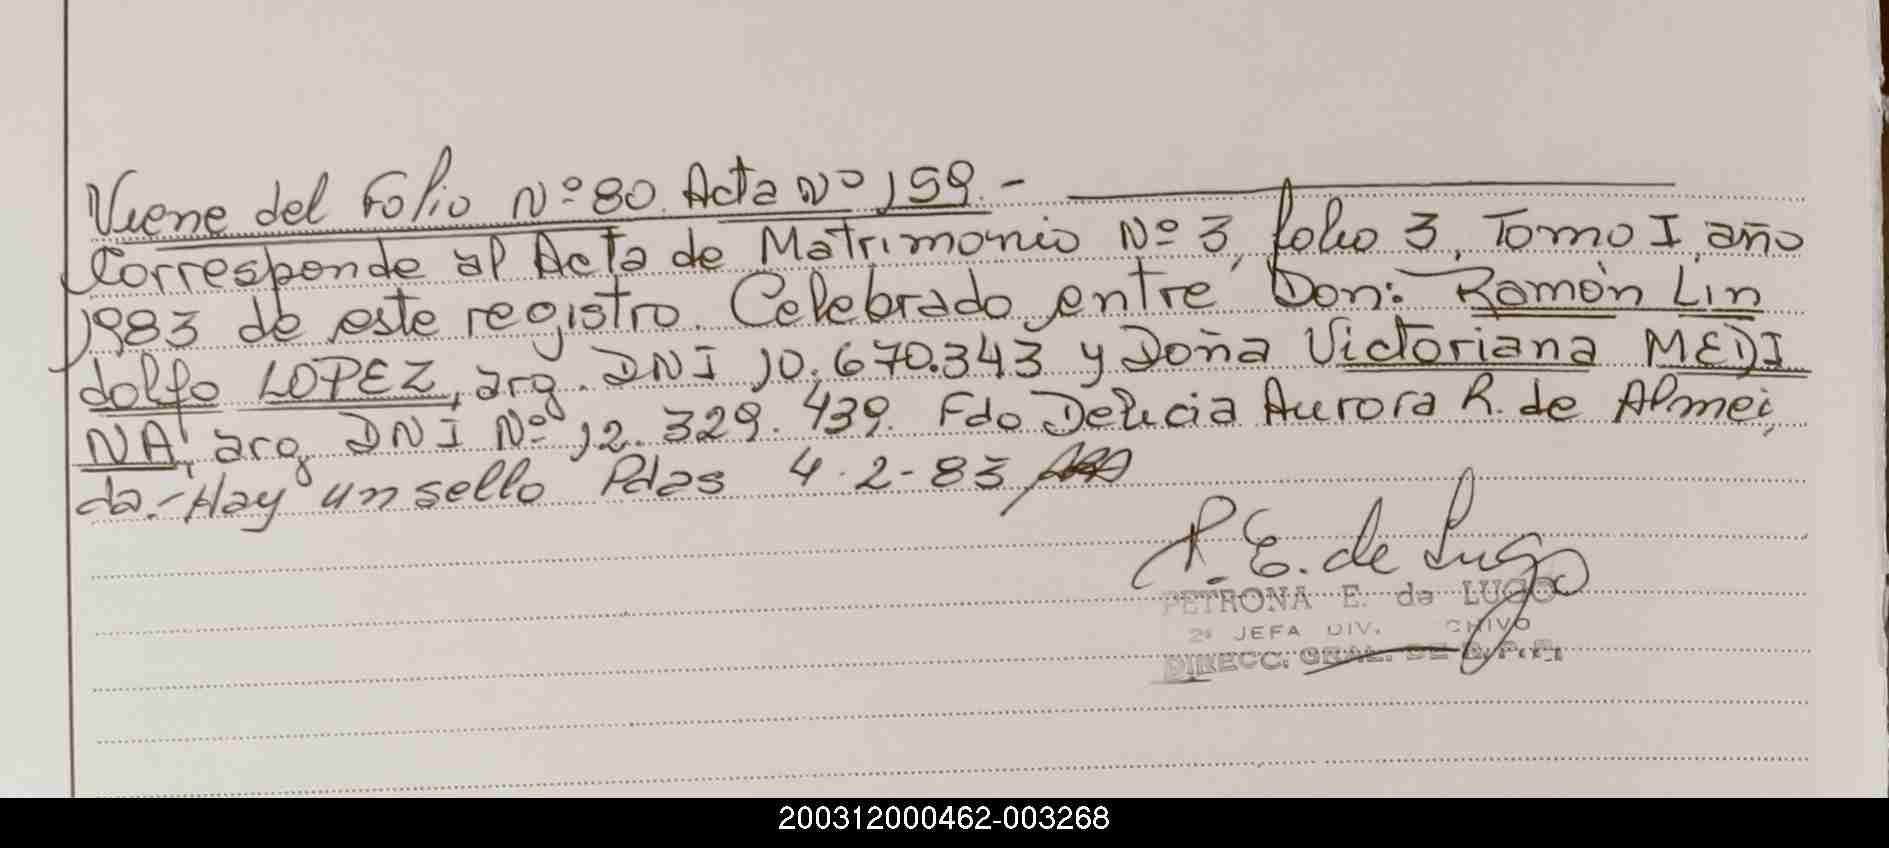 Viene del Folio Nº 80. Acta Nº 159.-
Corresponde al Acta de Matrimonio Nº 3, folio 3, Tomo I, año
1983 de este registro. Celebrado entre Don: Ramón Lin
dolfo LOPEZ, arg. DNI 10.670.343 y Doña Victoriana MEDI
NA, arg. DNI Nº 12.329.439. Fdo Delicia Aurora R. de Almei
da.- Hay un sello Pdas 4-2-83
P. E. de Lugo
PETRONA E. de LUGO
2ª JEFA DIV. CHIVO
DIRECC. GRAL. DE R.P.P.
200312000462-003268